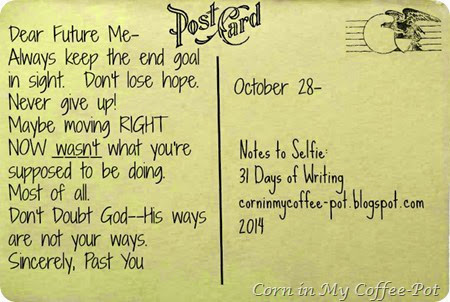 Post Card
Dear Future Me-
Always keep the end goal
in sight. Don't lose hope.
Never give up!
Maybe moving RIGHT
NOW wasn't what you're
supposed to be doing.
Most of all.
Don't Doubt God--His ways
are not your ways.
Sincerely, Past You
October 28-
Notes to Selfie:
31 Days of Writing
corninmycoffee-pot.blogspot.com
2014
Corn in My Coffee-Pot